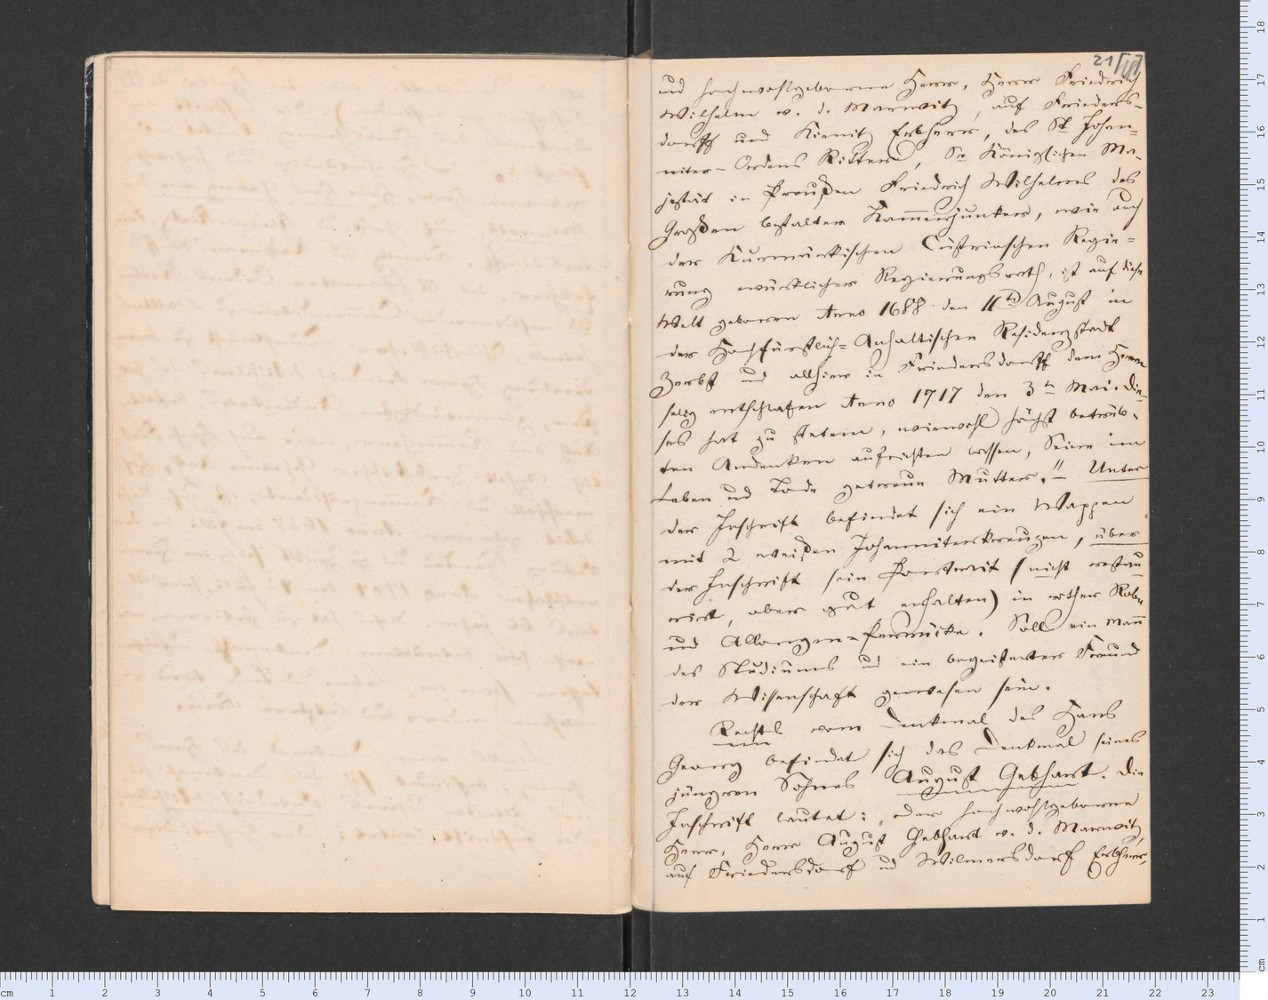 21
und hochwohlgeborene Herr, Herr Friedrich
Wilhelm v. d. Marwitz, auf Frieders-
dorff und Kienitz Erbherr, des St Johan=
niter-Ordens Ritter, Sr Königlichen Ma-
jestät in Preußen Friedrich Wilhelms des
Großen bestalter Kammerjunker, wie auch
der Kurmärkischen Cüstrinschen Regie=
rung würklicher Regierungsrath, ist auf diese
Welt geboren Anno 1688 den 11t August in
der Hochfürstlich-Anhaltischen Residenzstadt
Zerbst und allhier in Friedersdorff dem Herrn
selig entschlafen Anno 1717 den 3t Mai. Die-
ses hat zu stetem, wiewohl höchst betrüb-
ten Andenken aufrichten lassen, Seine im
Leben und Tode getreue Mutter." Unter
der Inschrift befindet sich ein Wappen
mit 2 weißen Johanniterkreuzen, über
der Inschrift sein Portrait (nicht restau
rirt, aber gut erhalten) in rother Robe
und Allongenperrücke. Soll ein Mann
des Studiums und ein begeisterter Freund
der Wissenschaft gewesen sein.
Rechts vom Denkmal des Hans
Georg befindet sich das Denkmal seines
jüngren Sohnes August Gebhart. Die
Inschrift lautet: „der hochwohlgeborene
Herr, Herr August Gebhart v. d. Marwitz,
auf Friedersdorf und Wilmersdorf Erbherr,